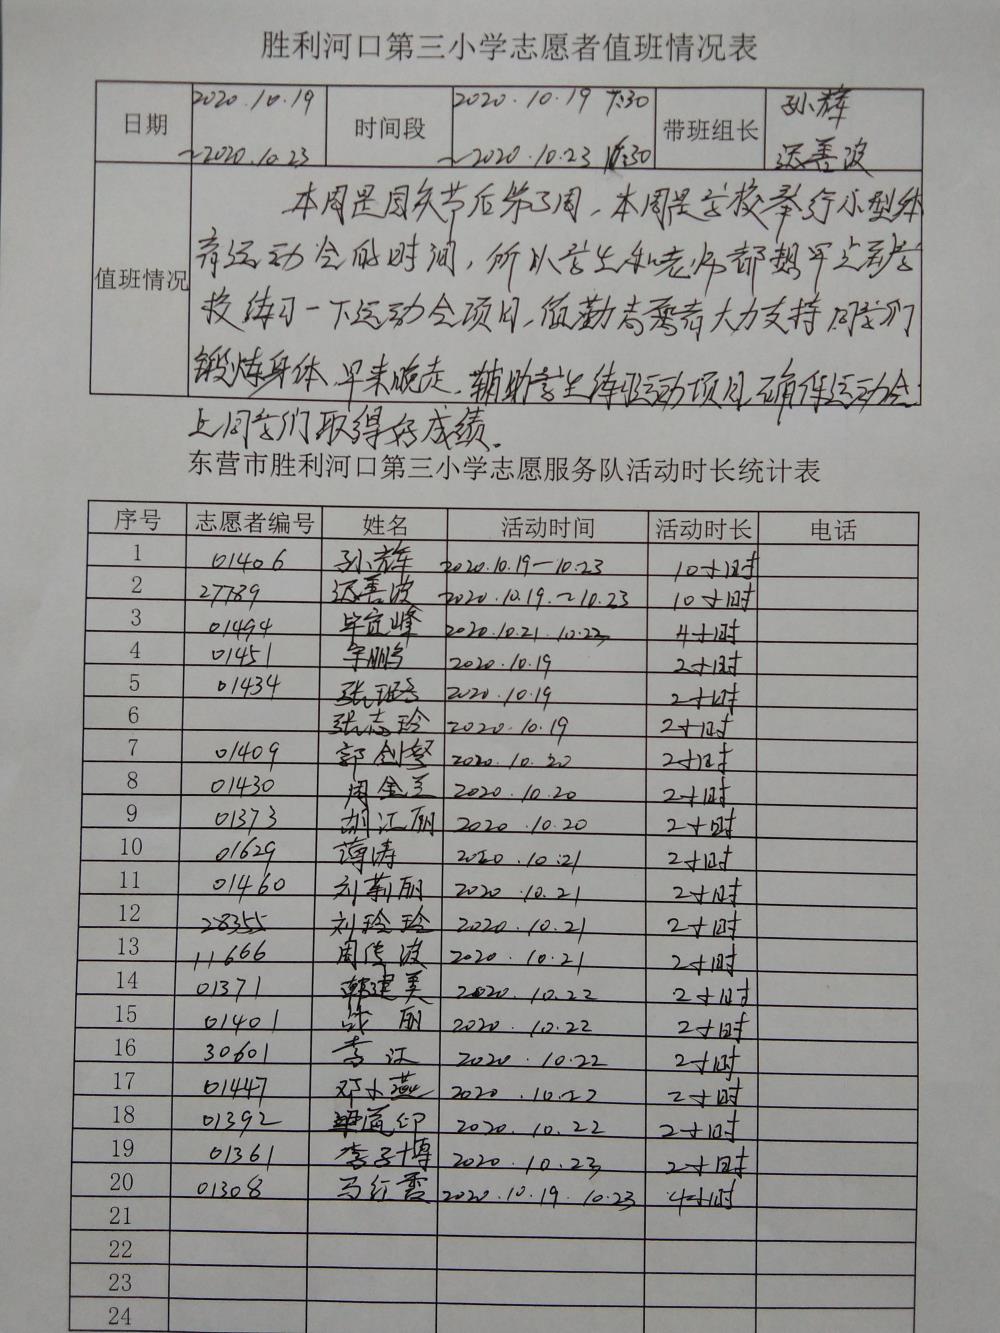 胜利河口第三小学志愿者值班情况表
日期 2020.10.19 ~2020.10.23 时间段 2020.10.19 7:30 ~2020.10.23 带班组长 孙辉 迟善波
值班情况
本周是国庆节后第二周,本周是学校举行小型体
育运动会的时间,所以学生和老师都想早点到学
校练习一下运动会项目,值勤者 大力支持同学们
锻炼身体,早来晚走,辅助学生练习运动项目,确保运动会
上同学们取得好成绩。
东营市胜利河口第三小学志愿服务队活动时长统计表
序号 志愿者编号 姓名 活动时间 活动时长 电话
1 01406 孙辉 2020.10.19—10.23 10小时
2 27739 迟善波 2020.10.19.~10.23 10小时
3 01494 峰 2020.10.21.10.23 4小时
4 01451 鹏 2020.10.19 2小时
5 01434 张 2020.10.19 2小时
6 张志玲 2020.10.19 2小时
7 01409 郭剑 2020.10.20 2小时
8 01430 周金兰 2020.10.20 2小时
9 01373 胡江丽 2020.10.20 2小时
10 01629 薄涛 2020.10.21 2小时
11 01460 刘新丽 2020.10.21 2小时
12 28355 刘玲玲 2020.10.21 2小时
13 11666 周传波 2020.10.21 2小时
14 01371 韩建美 2020.10.22 2小时
15 01401 丽 2020.10.22 2小时
16 30601 李江 2020.10.22 2小时
17 01447 邓小燕 2020.10.22 2小时
18 01392 2020.10.22 2小时
19 01361 李子博 2020.10.23 2小时
20 01308 马红霞 2020.10.19.10.23 4小时
21
22
23
24